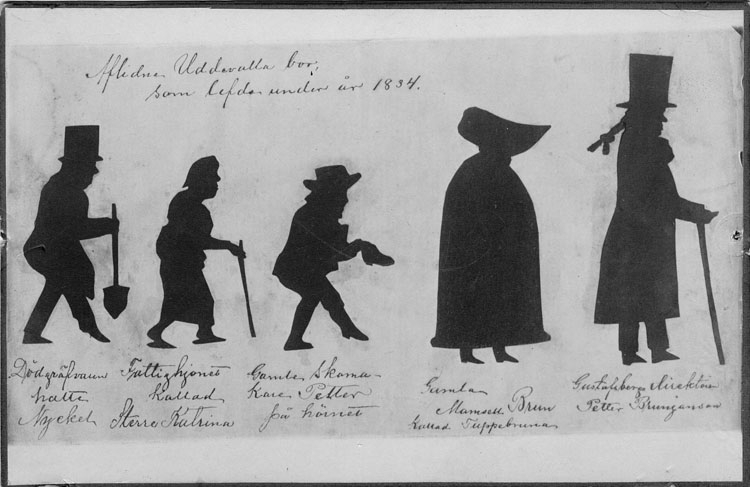 Aflidne Uddevalla bor,
som lefde under år 1834.
Dödgräfvaren
Matte
Nyckel
Fattighjonet
kallad
Sterre Katrina
Gamle Skoma-
kare Petter
på hörnet
Gamla
Mamsell Brun
kallad Tuppebruna
Gustafsbergs Direktör
Petter Brunjansson